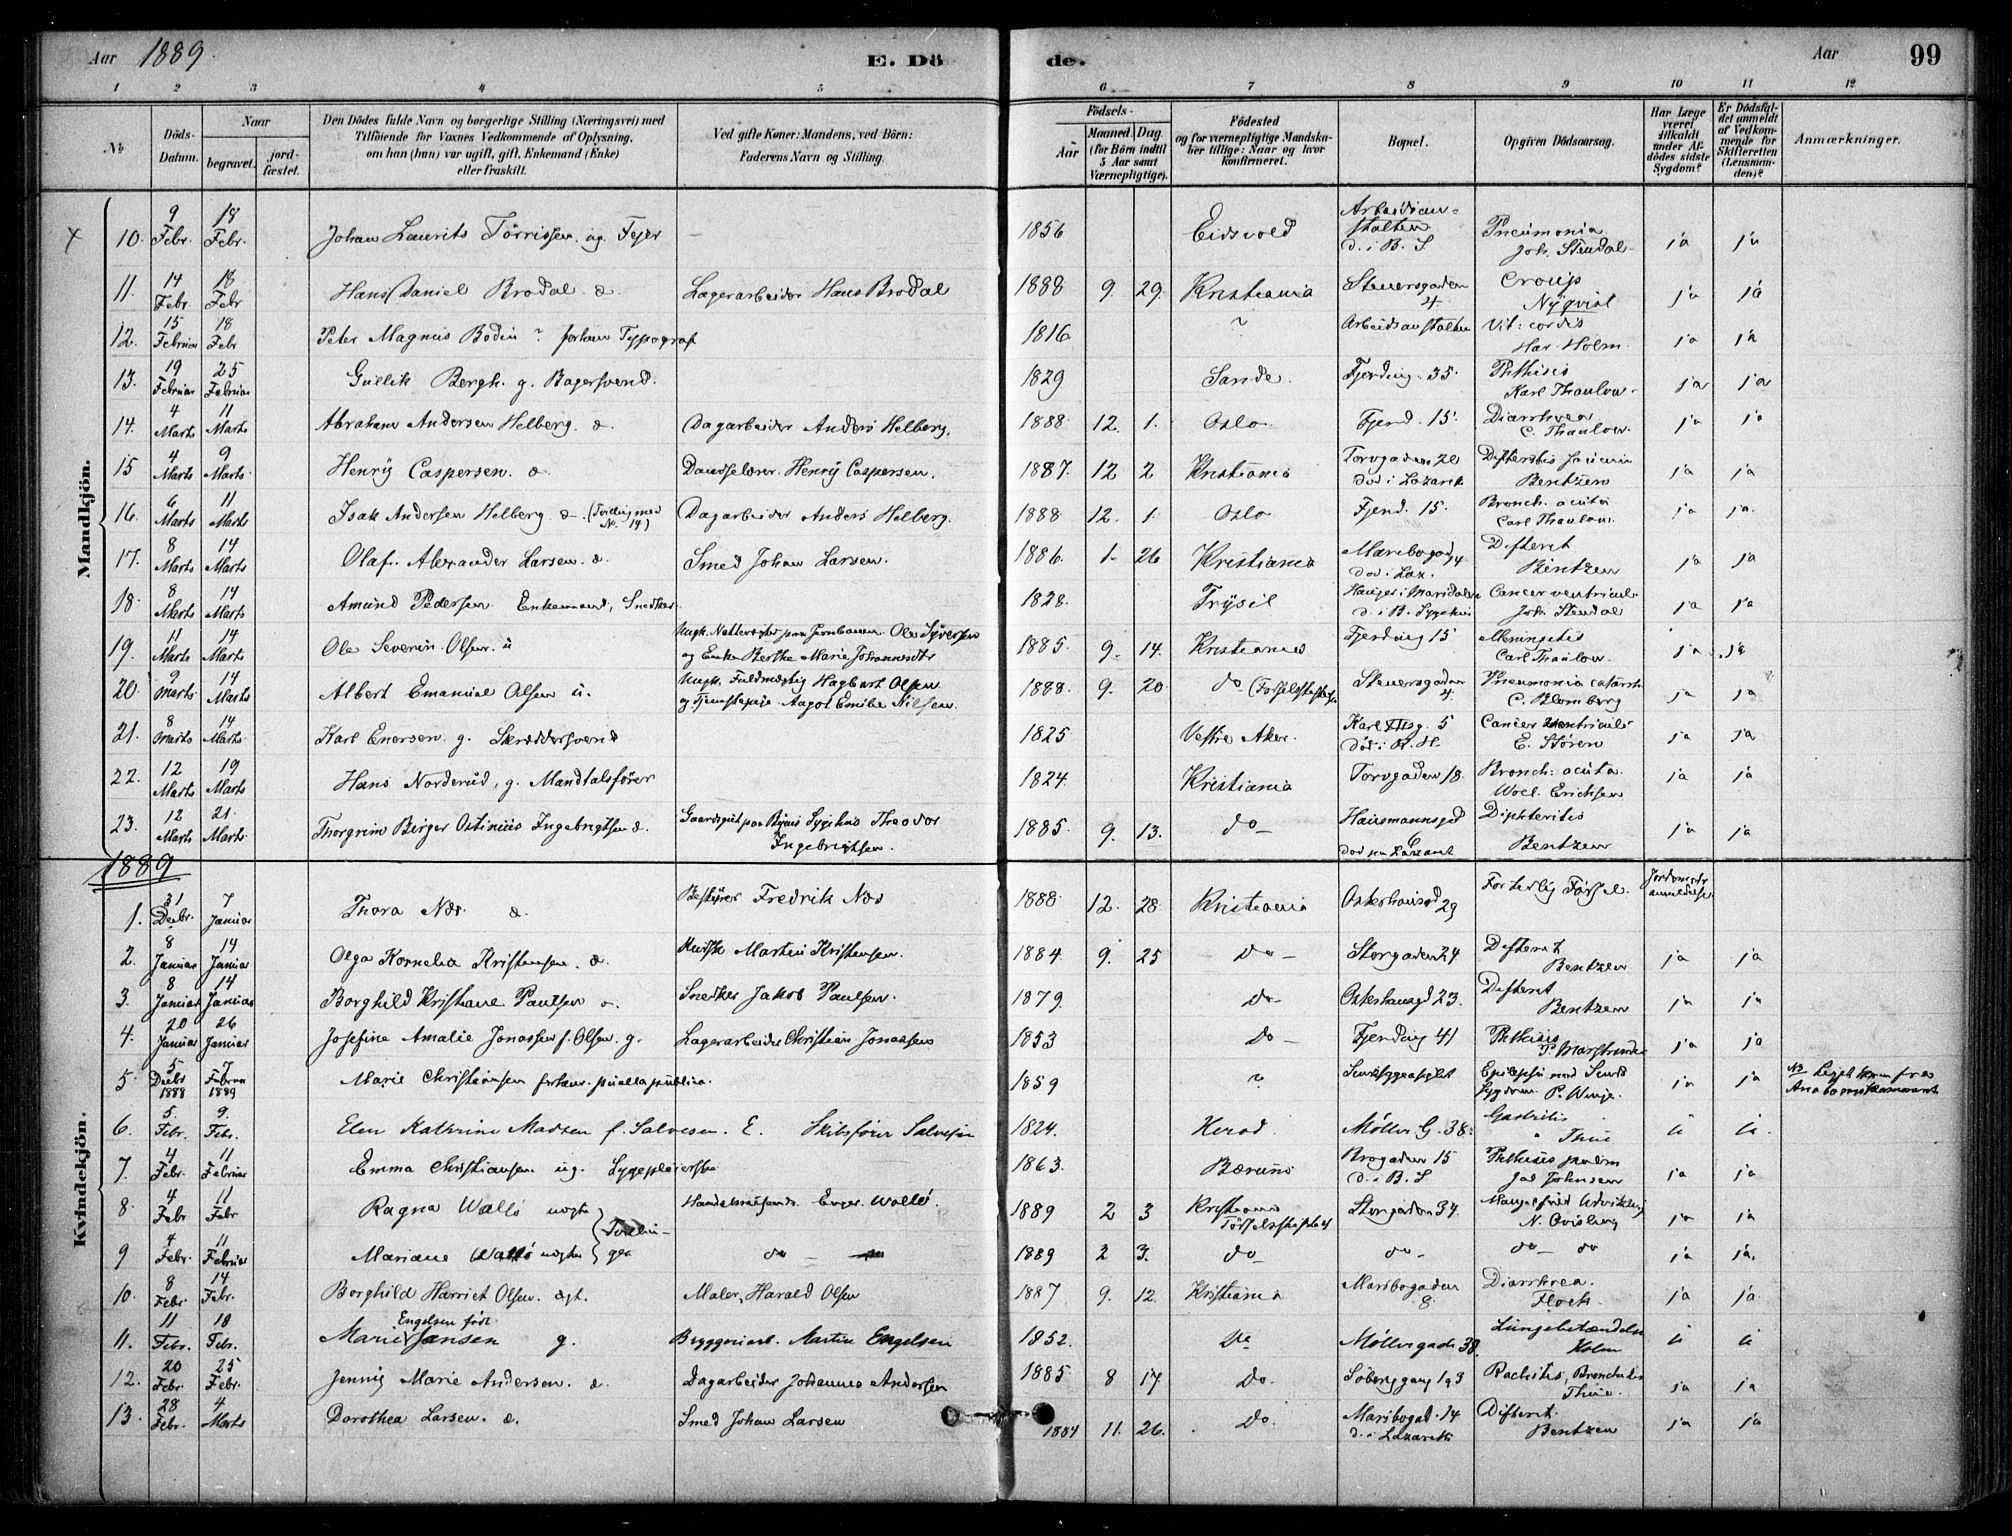 Aar 1889.
E. Dö de.
Aar 99
1 2 3 4 5 6 7 8 9 10 11 12
No
Döds-Datum.
Naar begravet. jordfæstet.
Den Dödes fulde Navn og borgerlige Stilling (Næringsvei) med Tilföiende för Voxnes Vedkommende af Oplysning, om han (hun) var ugift, gift, Enkemand (Enke) eller fraskilt.
Ved gifte Koner: Mandens, ved Börn: Faderens Navn og Stilling.
Födsels- Aar Maaned. Dag. (for Börn indtil 5 Aar samt Værnepligtige).
Födested og for værnepligtige Mandskaber tillige: Naar og hvor konfirmeret.
Bopæl.
Opgiven Dödsaarsag.
Har Læge været tilkaldt under Afdödes sidste Sygdom?
Er Dödsfaldet anmeldt af Vedkommende for Skifteretten (Lensmanden)?
Anmærkninger.
Mandkjön.
10. 9 Febr. 18 Febr. Johan Laurits Törrissen ug. Fejer 1856 Eidsvold Arbeidsanstalten d. i B. S Pneumonia Joh. Stendal ja ja
11. 14 Febr. 18 Febr Hans Daniel Brodal æ Lagerarbeider Hans Brodal 1888 9. 29. Kristiania Steuersgaden 4. Croup Nyqvist ja ja
12. 15 Februar 18 Febr Peter Magnus Bodin ? forhen Typograf 1816 ? Arbeidsanstalten Vit: cordis Har. Holm. ja ja
13. 19 Februar 25 Februar Gullik Bergh. g. Bagersvend. 1829 Sande. Fjerding. 35. Phthisis Karl Thaulow ja ja
14. 4 Marts 11 Marts Abraham Andersen Helberg. æ Dagarbeider Anders Helberg. 1888 12. 1. Oslo Fjerd. 15 Diarrhoea C. Thaulow. ja ja
15 4 Marts 9 Marts Henry Caspersen. æ Dandselærer Henry Caspersen. 1887. 12 2 Kristiania Torvgaden 20 død i Lazareth Bentzen ja ja
16. 6 Marts 11 Marts Isak Andersen Helberg æ. (Tvilling med No. 14) Dagarbeider Anders Helberg. 1888 12. 1. Oslo Fjerd. 15. Bronch. acuta Carl Thaulow. ja ja.
17. 8 Marts 14 Marts Olaf Alexander Larsen. æ Smed Johan Larsen. 1886. 1. 26 Kristiania Maribogad 14 død i Laz. Difterit Bentzen ja ja
18. 8 Marts 14 Marts Amund Pedersen Enkemand, Snedker. 1828. Trysil Hauger i Maridalen d. i B. Sygehus Cancer ventriculi Joh. Stendal ja ja
19. 11 Marts 14 Marts Ole Severin Olsen. u Ungk. Natlevagter paa Jernbanen Ole Syversen og Enke Berthe Marie Johannesdtr 1885. 9. 14. Kristiania Fjerding 15 Meningitis Carl Thaulow. ja ja
20. 9 Marts 14 Marts Albert Emanuel Olsen u. Ungk. Fuldmægtig Hagbart Olsen og Tjenestepige Aagot Emilie Nilsen. 1888. 9. 20 do (Fødselsstiftelsen Steuersgaden 4. Pneumonia catarrh C. Blomberg ja ja
21. 8 Marts 14 Marts Karl Enersen g. Skræddersvend 1825 Vestre Aker. Karl XIIsg. 5 Død i R. H. Cancer ventriculi E. Støren ja ja
22. 12 Marts 19 Marts Hans Norderud, g. Mandtalsfører 1824. Kristiania Torvgaden 18. Bronch: acuta. Erichsen ja ja
23. 12 Marts 21. Marts Thorgrim Birger Ostinius Ingebrigtsen æ. Gaardsgut paa Byens Sygehus Theodor Ingebrigtsen. 1885. 9. 13. do Hausmannsgd 6 død paa Lazaret Diphteritis Bentzen ja ja
1889
Kvindekjön.
1. 31 Decbr. 7 Januar Thora Næs. æ. Bestyrer Fredrik Næs 1888 12. 28 Kristiania Osterhausgd 29 For tidlig Fødsel. Jordemoderanmeldelse
2. 8 Januar 14 Januar Olga Kornelia Kristensen. æ. Kudsk Martin Kristensen. 1884 9. 25 Do Storgaden 24 Difterit Bentzen ja ja
3. 8 Januar 14 Januar Borghild Kristiane Paulsen æ. Snedker Jakob Paulsen. 1879. do Osterhausgd 23. Difterit Bentzen ja ja
4. 20 Januar 26 Januar Josefine Amalie Jonassen f. Olsen. g. Lagerarbeider Christian Jonassen 1853 Do Fjerding 41 Phthisis P. Marstrander ja ja
5. 5 Decbr 1888 7 Februar 1889 Marie Christiansen forhen. puella publica. 1859 ? Sindssygeasylet Epilepsi med Sinds Sygdom P. Winge. ja ja NB Liget kom fra Anatomikammeret
6. 5. Febr. 9. Febr. Elen Kathrine Madsen f. Salvesen. E. Skibsfører Salvesen 1824. Herad. Møller G. 38. Gastritis Thue ja ja
7. 4 Febr. 11 Februar Emma Christiansen ug. Sygepleierske 1863. Bærums Brogaden 15 d. i B. S Phthisis pulm Johnsen ja ja
8. 4 Febr 11 Febr Ragna Wallö uægte } Tvillinger Handelsreisende Wallö. 1889 2 3 Kristiania Fødselsstiftelsen Storgaden 34. Mangelfuld Udvikling N. Qvisling ja ja
9 4 Febr. 11 Februar Mariane Wallö uægte do 1889 2 3. do do do do ja ja.
10. 8 Febr. 14 Febr. Borghild Harriet Olsen. ægt. Maler, Harald Olsen 1887 9. 12. Kristiania Maribogaden 8. Diarrhoea. Flock. ja ja
11. 11 Febr. 18 Febr. Marie Engelsen født Jansen g. Bryggeriarb. Martin Engelsen 1852. Do Møllergade 38. Lungebetændelse Holm ja ja
12. 20 Febr 25 Febr. Jenny Marie Andersen. æ Dagarbeider Johannes Andersen 1885 8 17 Do. Söberggang 1a3 Rachitis, Bronchitis Thue ja ja
13. 28 Febr. 4 Marts Dorothea Larsen. æ. Smed Johan Larsen 1884 11. 26. Do. Maribogad. 14 d. i Lazareth Difterit. Bentzen ja ja